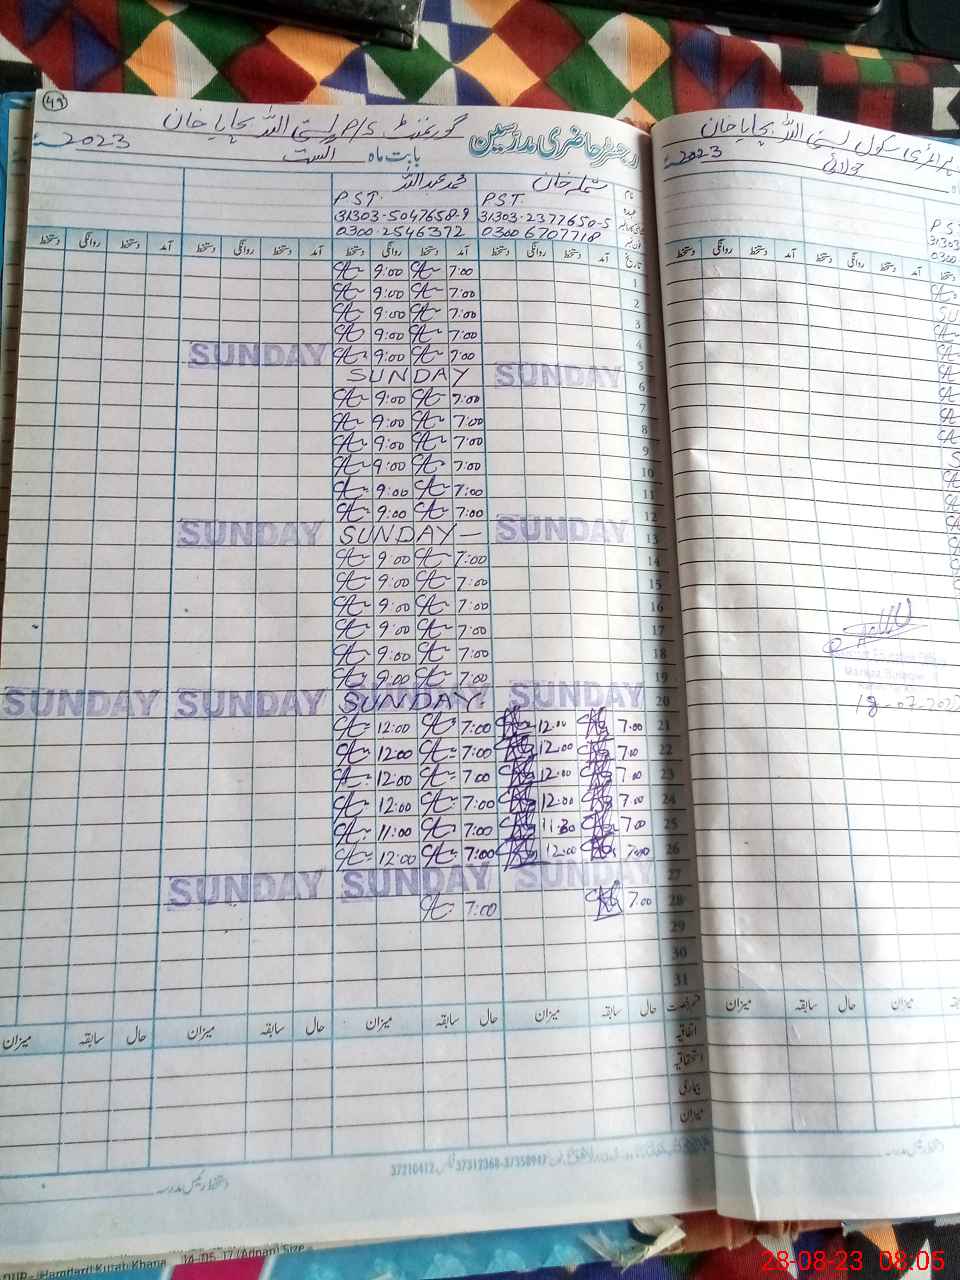 49
گورنمنٹ P/S بستی اللہ بچایا خان
رجسٹر حاضری مدرسین
بابت ماہ اگست 2023
شملہ خان
PST.
31303-2377650-5
0300 6707718
محمد عبداللہ
PST.
31303-5047658-9
0300-2546372
تاریخ آمد دستخط روانگی دستخط آمد دستخط روانگی دستخط آمد دستخط روانگی دستخط آمد دستخط روانگی دستخط
1 7:00 9:00
2 7:00 9:00
3 7:00 9:00
4 7:00 9:00
5 7:00 9:00 SUNDAY
6 SUNDAY SUNDAY
7 7:00 9:00
8 7:00 9:00
9 7:00 9:00
10 7:00 9:00
11 7:00 9:00
12 7:00 9:00
13 SUNDAY SUNDAY - SUNDAY
14 7:00 9:00
15 7:00 9:00
16 7:00 9:00
17 7:00 9:00
18 7:00 9:00
19 7:00 9:00
20 SUNDAY SUNDAY SUNDAY SUNDAY
21 7:00 12:00 7:00 12:00
22 7:00 12:00 7:00 12:00
23 7:00 12:00 7:00 12:00
24 7:00 12:00 7:00 12:00
25 7:00 11:30 7:00 11:00
26 7:00 12:00 7:00 12:00
27 SUNDAY SUNDAY SUNDAY
28 7:00 7:00
29
30
31
حال سابقہ میزان حال سابقہ میزان حال سابقہ میزان حال سابقہ میزان
اتفاقیہ
استحقاقیہ
بیماری
میزان
37210412 37312368-37358947
دستخط رئیس مدرسہ
پرائمری سکول بستی اللہ بچایا خان
جولائی 2023
PST
31303
0300
دستخط روانگی دستخط آمد دستخط روانگی دستخط آمد
18-07-2023
حال سابقہ میزان میزان
دستخط رئیس مدرسہ
Hamdard Kutab Khana
28-08-23 08:05